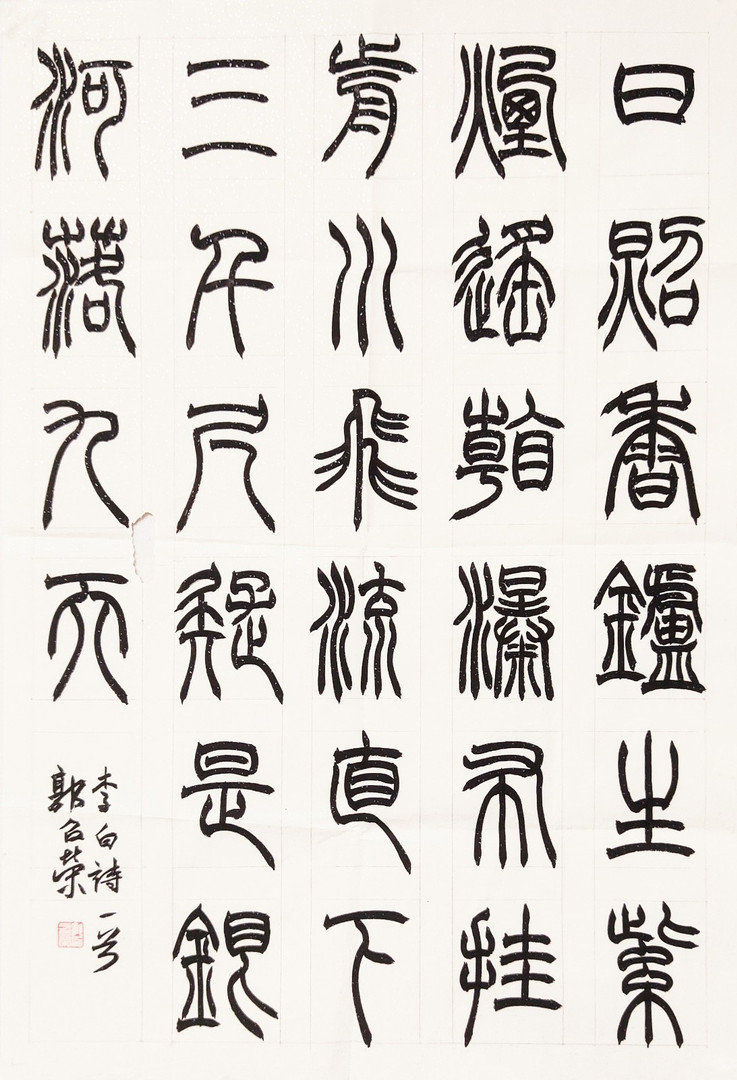 日照香鑪生紫
煙遙看瀑布挂
前川飛流直下
三千尺疑是銀
河落九天
李白詩一首
郭榮